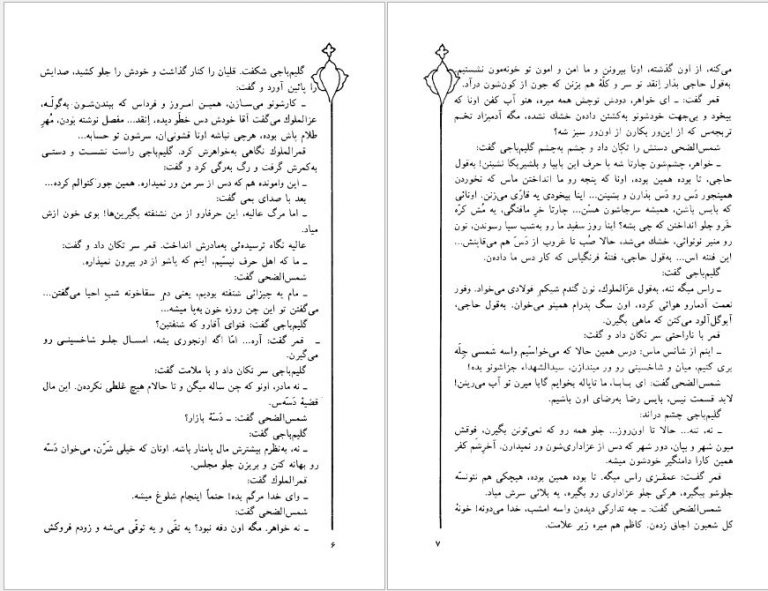 می‌کنه، از اون گذشته، اونا بیرونن و ما امن و امون تو خونه‌مون نشستیم.
به‌قول حاجی بذار اِنقد تو سر و کلّهٔ هم بزنن که جون از کون‌شون درآد.
قمر گفت: ـ ای خواهر، دودش توچش همه میره، هنو آب کفن اونا که
بیخود و بی‌جهت خودشونو به‌کشتن داده‌ن خشك نشده، مگه آدمیزاد تخم
تربچه‌س که از این‌ور بکارن از اون‌ور سبز شه؟
شمس‌الضحی دستش را تکان داد و چشم به‌چشم گلیم‌باجی گفت:
ـ خواهر، چشم‌شون چارتا شه با حرف این بابیا و بلشیریکا نشینن! به‌قول
حاجی، تا بوده همین بوده، اونا که پنجه رو ما انداختن ماس که نخوردن
همینجور دَس رو دَس بذارن و بشینن... اینا بیخودی یه قازّی می‌زنن. اونائی
که بابس باشن، همیشه سرجاشون هسّن... چارتا خرِ مافنگی، یه مُش کرّه
خرو جلو انداختن که چی بشه؟ اینا روز سفید ما رو به‌شب سیا رسوندن، نون
رو منبر نونوائی، خشك می‌شد، حالا صُب تا غروب از دَسّ هم می‌قاپنش...
این فتنه اس... به‌قول حاجی، فتنهٔ فرنگیاس که کار دس ما داده‌ن.
گلیم‌باجی گفت:
ـ راس میگه ننه، به‌قول عزّالملوك، نون گندم شیکم فولادی می‌خواد. وفور
نعمت آدمارو هوائی کرده، اون سگ پدرام همینو می‌خوان. به‌قول حاجی،
آبوگل‌آلود می‌کنن که ماهی بگیرن.
قمر با ناراحتی سر تکان داد و گفت:
ـ اینم از شانس ماس: درس همین حالا که می‌خواسّیم واسه شمسی چلّه
بری کنیم، میان و شاخسینی رو ور میندازن. سیدالشهداء جزاشونو بده!
شمس‌الضحی گفت: ای بـابـا، ما تاپاله بخوایم گایا میرن تو آب می‌رینن!
لابد قسمت نیس، بابس رضا به‌رضای اون باشیم.
گلیم‌باجی چشم دراند:
ـ نه، ننه... حالا تا اون‌روز... جلو همه رو که نمی‌تونن بگیرن، فوقش
میون شهر و بیان، دور شهر که دس از عزاداری‌شون ور نمیدارن. آخرشم کفر
همین کارا دامنگیر خودشون میشه.
قمر گفـت: عمقـزی راس میگه. تا بوده همین بوده، هیچکی هم نتونسّه
جلوشو بیگیره، هرکی جلو عزاداری رو بگیره، یه بلائی سرش میاد.
شمس‌الضحی گفت: ـ چه تدارکی دیده‌ن واسه امشب، خدا می‌دونه! خونهٔ
کل شعبون اجاق زده‌ن. کاظم هم میره زیر علامت.
۷
گلیم‌باجی شکفت. قلیان را کنار گذاشت و خودش را جلو کشید، صدایش
را پائین آورد و گفت:
ـ کارشونو می‌سـازن، همیـن امـروز و فرداس که ببندن‌شـون به‌گولّـه.
عزالملوك می‌گفت آقا خودش دس خطّو دیده، اِنقد... مفصل نوشته بوُدن، مُهرِ
طلام باش بوده، هرچی نباشه اونا قشونی‌ان، سرشون تو حسابه...
قمرالملوك نگاهی به‌خواهرش کرد. گلیم‌باجی راست نشسـت و دستـی
به‌کمرش گرفت و رگ به‌رگی کرد و گفت:
ـ این وامونده هم که دس از سر من ور نمیداره. همین جور کتوالم کرده...
بعد با صدای بمی گفت:
ـ اما مرگ عالیه، این حرفارو از من نشنفته بگیرین‌ها! بوی خون ازش
میاد.
عالیه نگاه ترسیده‌ئی به‌مادرش انداخت. قمر سر تکان داد و گفت:
ـ ما که اهل حرف نیسّیم، اینم که پاشو از در بیرون نمیذاره.
شمس‌الضحی گفت:
ـ مام یه چیزائی شنفته بودیم، یعنی دم سقاخونه شبِ احیا می‌گفتن...
می‌گفتن تو این چن روزه خون به‌پا میشه...
گلیم‌باجی گفت: فتوای آقارو که شنفتین؟
ـ قمر گفت: آره... امّا اگه اونجوری بشه، امسـال جلـو شاخسینـی رو
می‌گیرن.
گلیم‌باجی سر تکان داد و با ملامت گفت:
ـ نه مادر، اونو که چن ساله میگن و تا حالام هیچ غلطی نکرده‌ن. این مال
قضیهٔ دَسّه‌س.
شمس‌الضحی گفت: ـ دَسّهٔ بازار؟
گلیم‌باجی گفت:
ـ نه، به‌نظرم بیشترش مال پامنار باشه. اونان که خیلی شرّن، می‌خوان دَسّه
رو بهانه کنن و بریزن جلو مجلس.
قمرالملوك گفت:
ـ وای خدا مرگم بده! حتماً اینجام شلوغ میشه.
شمس‌الضحی گفت:
ـ نه خواهر. مگه اون دفه نبود؟ یه تقّی و یه توقّی می‌شه و زودم فروکش
۶